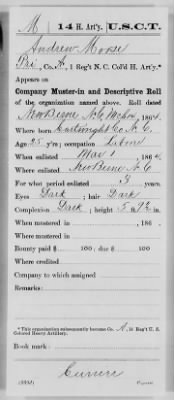 M 14 H. Art'y. U.S.C.T.
Andrew Morse
Pvt, Co. A, 1 Reg't N. C. Col'd H. Art'y.*
Appears on
Company Muster-in and Descriptive Roll
of the organization named above. Roll dated
New Berne N.C. Mch 1864.
Where born N.C.
Age 25 y'rs; occupation Labor
When enlisted Mar 1, 1864.
Where enlisted New Berne N.C.
For what period enlisted 3 years.
Eyes Dark; hair Dark
Complexion Dark; height 5 ft. 9½ in.
When mustered in , 186 .
Where mustered in
Bounty paid $ 100; due $ 100
Where credited
Company to which assigned
Remarks:
*This organization subsequently became Co. A, 14 Reg't U. S.
Colored Heavy Artillery.
Book mark:
Copyist.